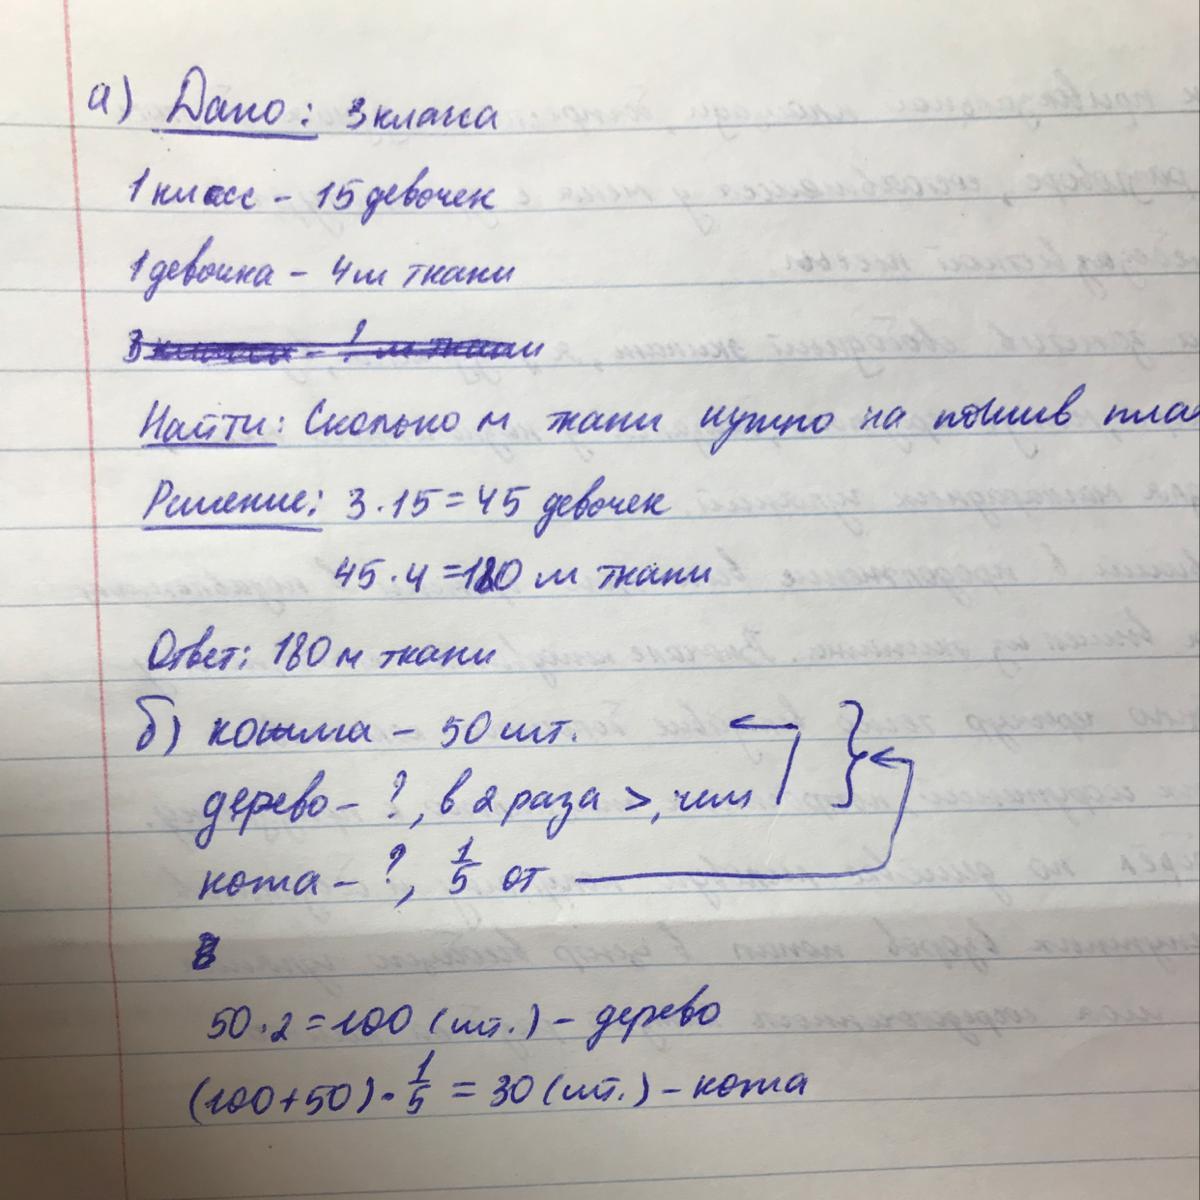 а) Дано: 3 класса
1 класс - 15 девочек
1 девочка - 4м ткани
Найти: Сколько м ткани нужно на пошив пла
Решение: 3 · 15 = 45 девочек
45 · 4 = 180 м ткани
Ответ: 180 м ткани
б) кошма - 50 шт.
дерево - ?, в 2 раза >, чем
кожа - ?, 1/5 от
50 · 2 = 100 (шт.) - дерево
(100 + 50) · 1/5 = 30 (шт.) - кожа